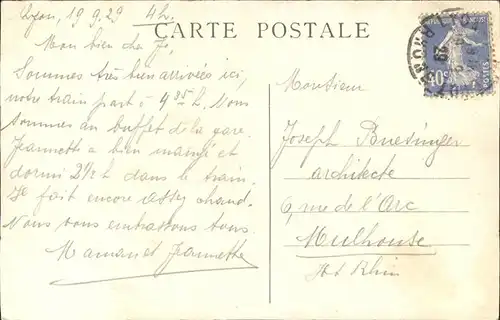 Lyon, 19 9.29 4h.
CARTE POSTALE
Mon bien cher Jo,
Sommes très bien arrivées ici,
notre train part à 4 25 h. Nous
sommes au buffet de la gare.
Jeannette a bien mangé et
dormi 2 1/2 h dans le train.
Il fait encore assez chaud.
Nous vous embrassons tous.
Maman et Jeannette
Monsieur
Joseph
architecte
6, rue de l'Arc
Mulhouse
Ht Rhin